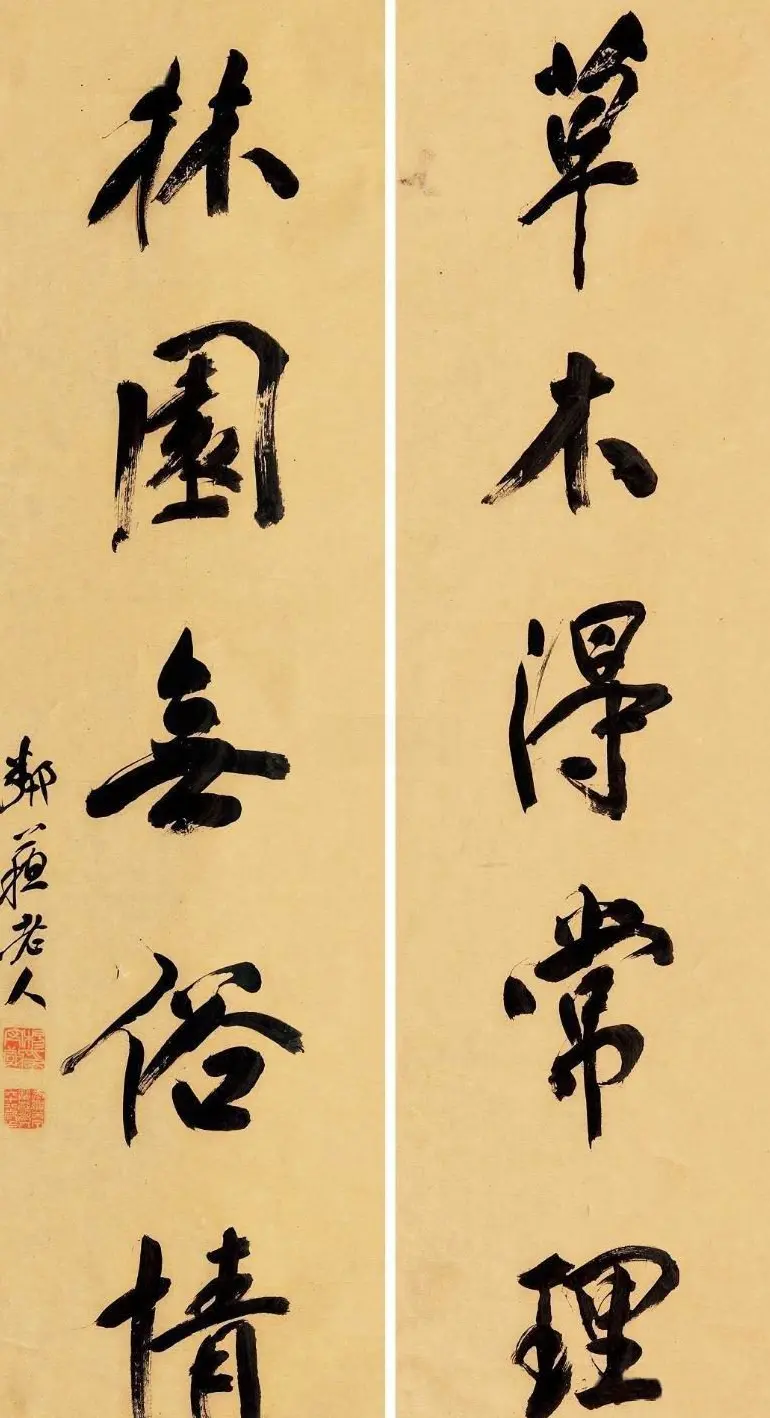 草木得常理
林園無俗情
鄰蘓老人